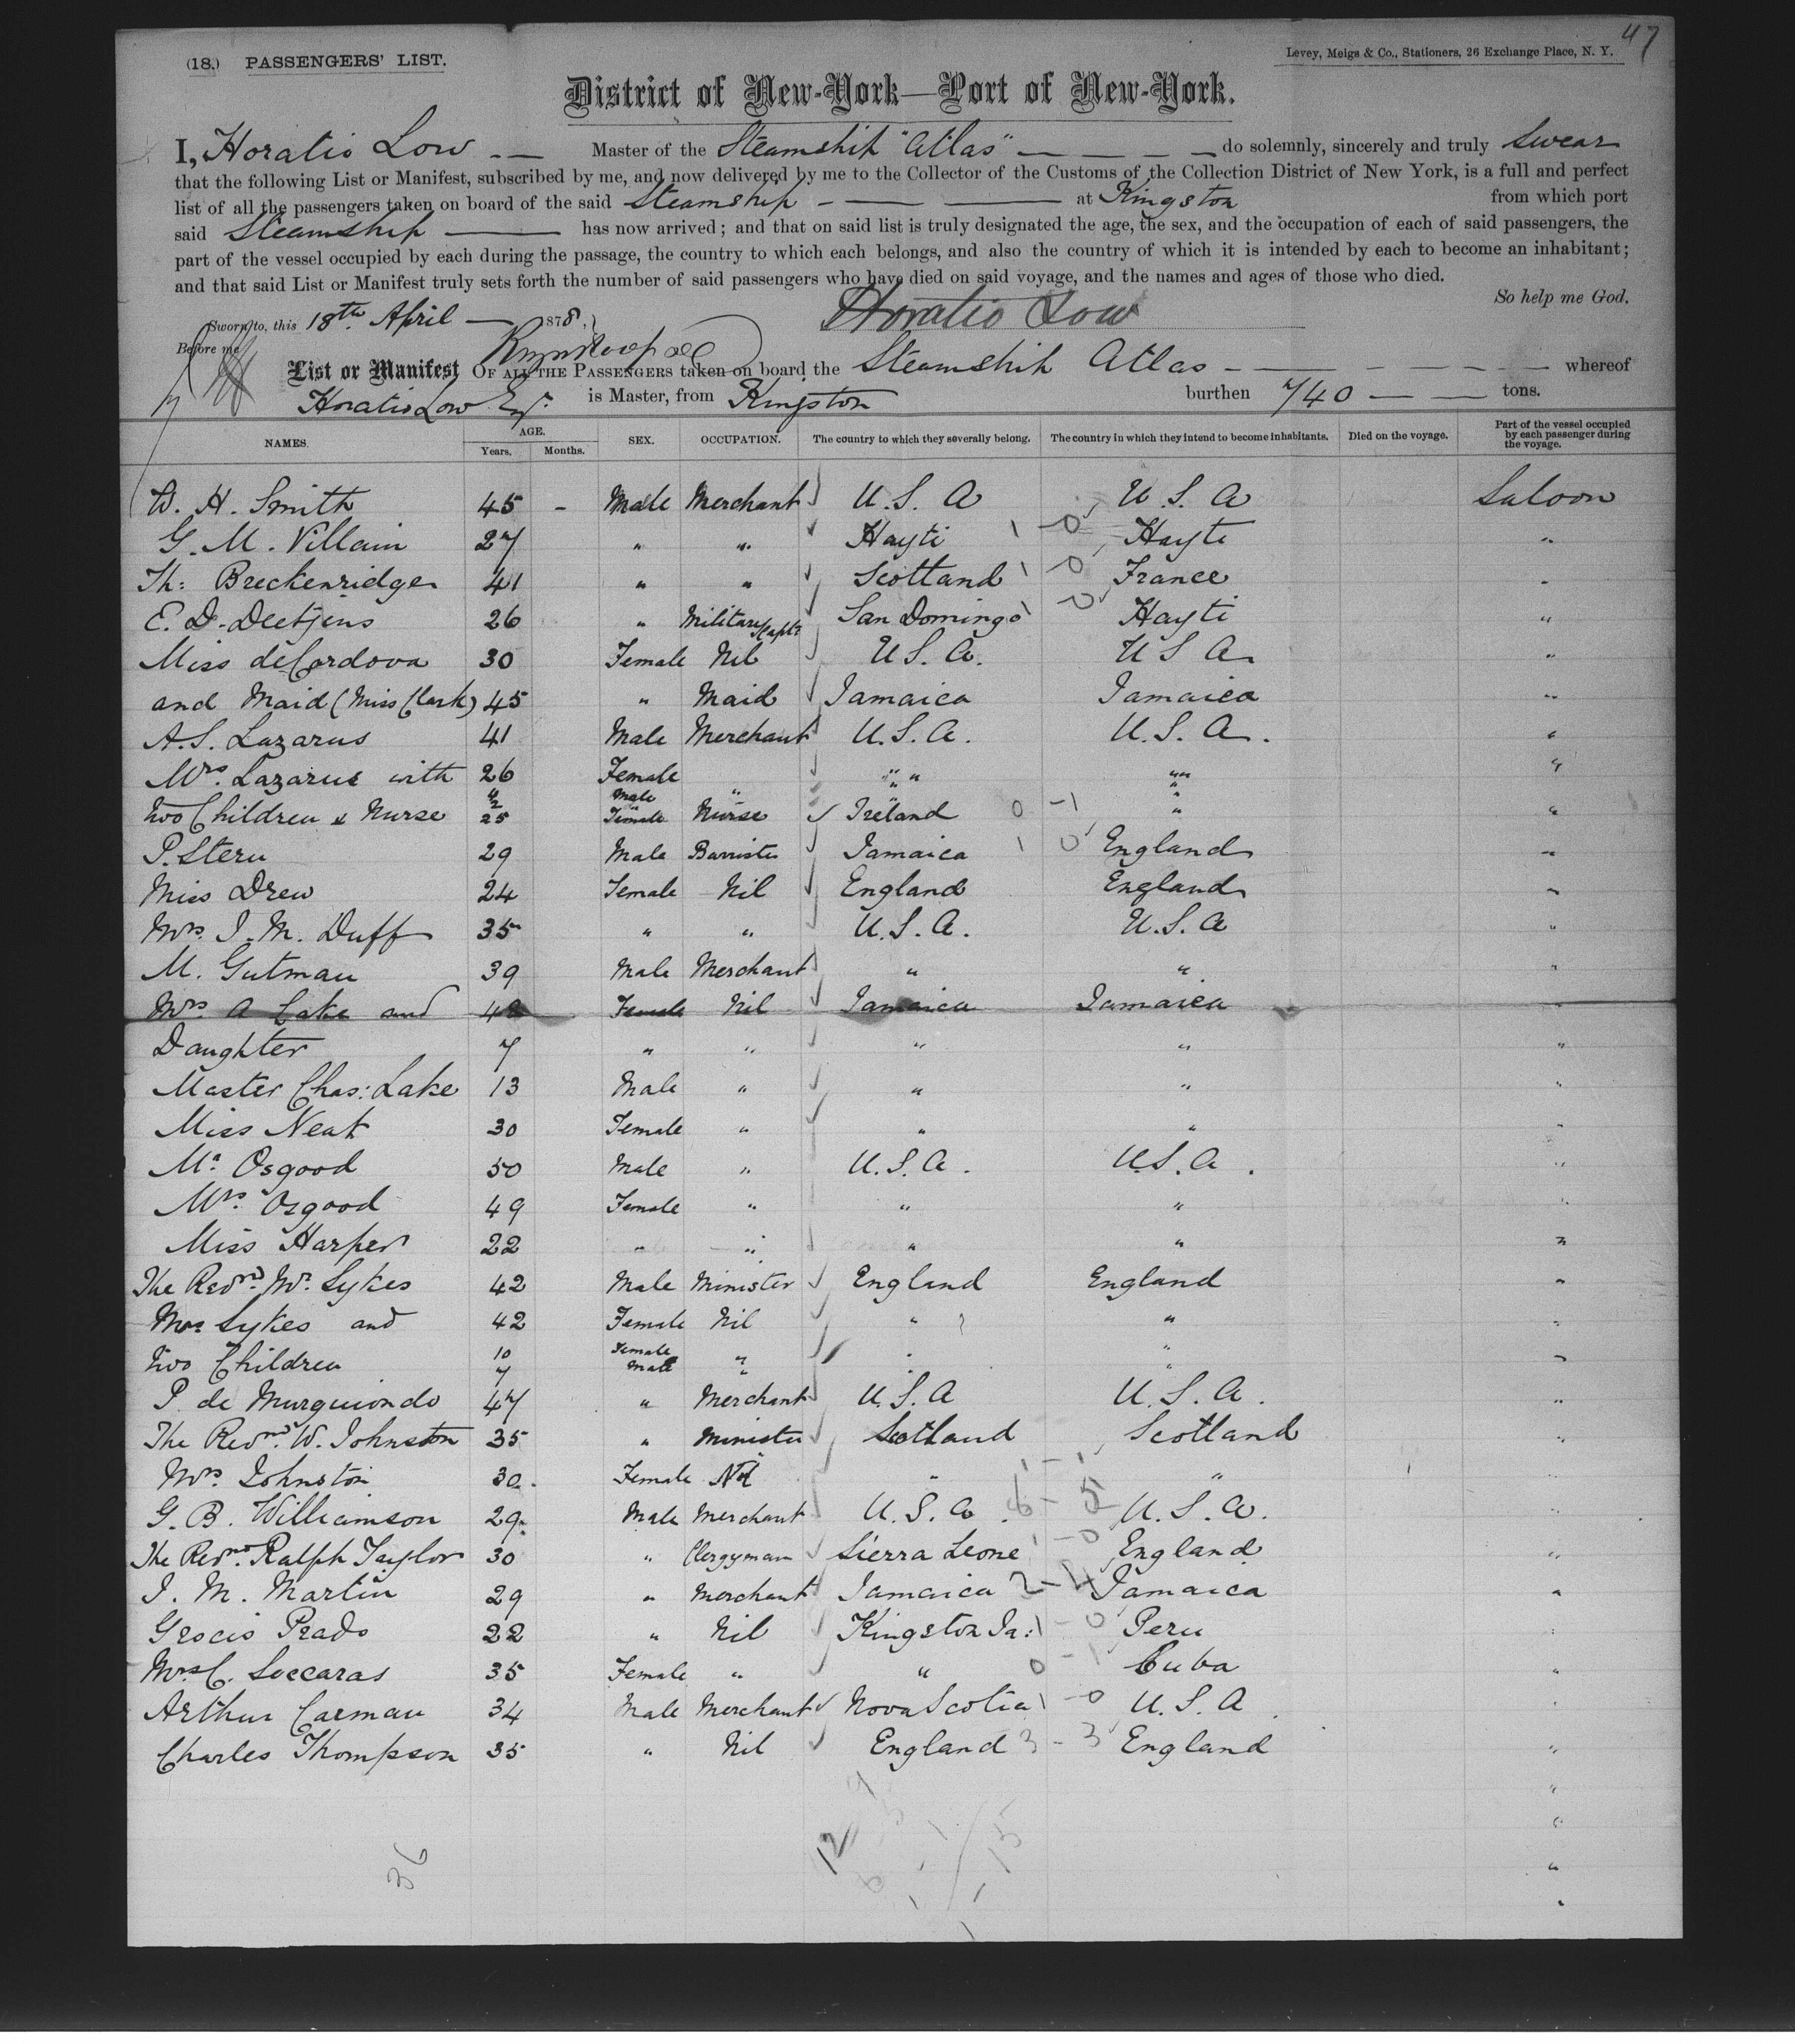 47
(18.) PASSENGERS' LIST.
Levey, Meigs & Co., Stationers, 26 Exchange Place, N. Y.
District of New-York—Port of New-York.
I, Horatio Low Master of the Steamship "Atlas" do solemnly, sincerely and truly Swear
that the following List or Manifest, subscribed by me, and now delivered by me to the Collector of the Customs of the Collection District of New York, is a full and perfect
list of all the passengers taken on board of the said Steamship at Kingston from which port
said Steamship has now arrived; and that on said list is truly designated the age, the sex, and the occupation of each of said passengers, the
part of the vessel occupied by each during the passage, the country to which each belongs, and also the country of which it is intended by each to become an inhabitant;
and that said List or Manifest truly sets forth the number of said passengers who have died on said voyage, and the names and ages of those who died.
So help me God.
Sworn to, this 18th April 1878,
Horatio Low
Before me
List or Manifest OF ALL THE PASSENGERS taken on board the Steamship Atlas whereof
Horatio Low Esqr. is Master, from Kingston burthen 740 tons.
NAMES. AGE. Years. Months. SEX. OCCUPATION. The country to which they severally belong. The country in which they intend to become inhabitants. Died on the voyage. Part of the vessel occupied by each passenger during the voyage.
W. H. Smith 45 - Male Merchant U. S. A U. S. A Saloon
G. M. Villain 27 " " Hayti 1 - 0 Hayti "
Th: Breckenridge 41 " " Scotland 1 0 France "
E. D. Deetjens 26 " Military Captn San Domingo 1 0 Hayti "
Miss deCordova 30 Female Nil U S. A. U S A "
and Maid (Miss Clark) 45 " Maid Jamaica Jamaica "
A. S. Lazarus 41 Male Merchant U. S. A. U. S. A. "
Mrs. Lazarus with 26 Female " " " " "
4 Male " " "
2
two Children & Nurse 25 Female Nurse Ireland 0 - 1 " "
P. Stern 29 Male Barrister Jamaica 1 0 England "
Miss Drew 24 Female Nil England England "
Mrs. J. M. Duff 35 " " U. S. A. U. S. A "
M. Gutman 39 Male Merchant " " "
Mrs A Lake and Female Nil Jamaica Jamaica "
Daughter 7 " " " " "
Master Chas: Lake 13 Male " " " "
Miss Neat 30 Female " " " "
Mr. Osgood 50 Male " U. S. A. U. S. A. "
Mrs. Osgood 49 Female " " " "
Miss Harper 22 " " " " "
The Revnd. Mr. Sykes 42 Male Minister England England "
Mrs Sykes and 42 Female Nil " " "
10 Female " "
two Children 7 Male " " " "
P. de Murguiondo 47 " Merchant U. S. A U. S. A. "
The Revnd. W. Johnston 35 " Minister Scotland Scotland "
Mrs. Johnston 30. Female Nil " " "
G. B. Williamson 29 Male Merchant U. S. A. 6 - 5 U. S. A. "
The Revnd. Ralph Taylor 30 " Clergyman Sierra Leone 1 - 0 England "
J. M. Martin 29 " Merchant Jamaica 2 - 4 Jamaica "
Grocio Prado 22 " Nil Kingston Ja: 1 - 0 Peru "
Mrs C. Soccaras 35 Female " " 0 - 1 Cuba "
Arthur Carman 34 Male Merchant Nova Scotia 1 - 0 U. S. A "
Charles Thompson 35 " Nil England 3 - 3 England "
"
"
12
36 "
"